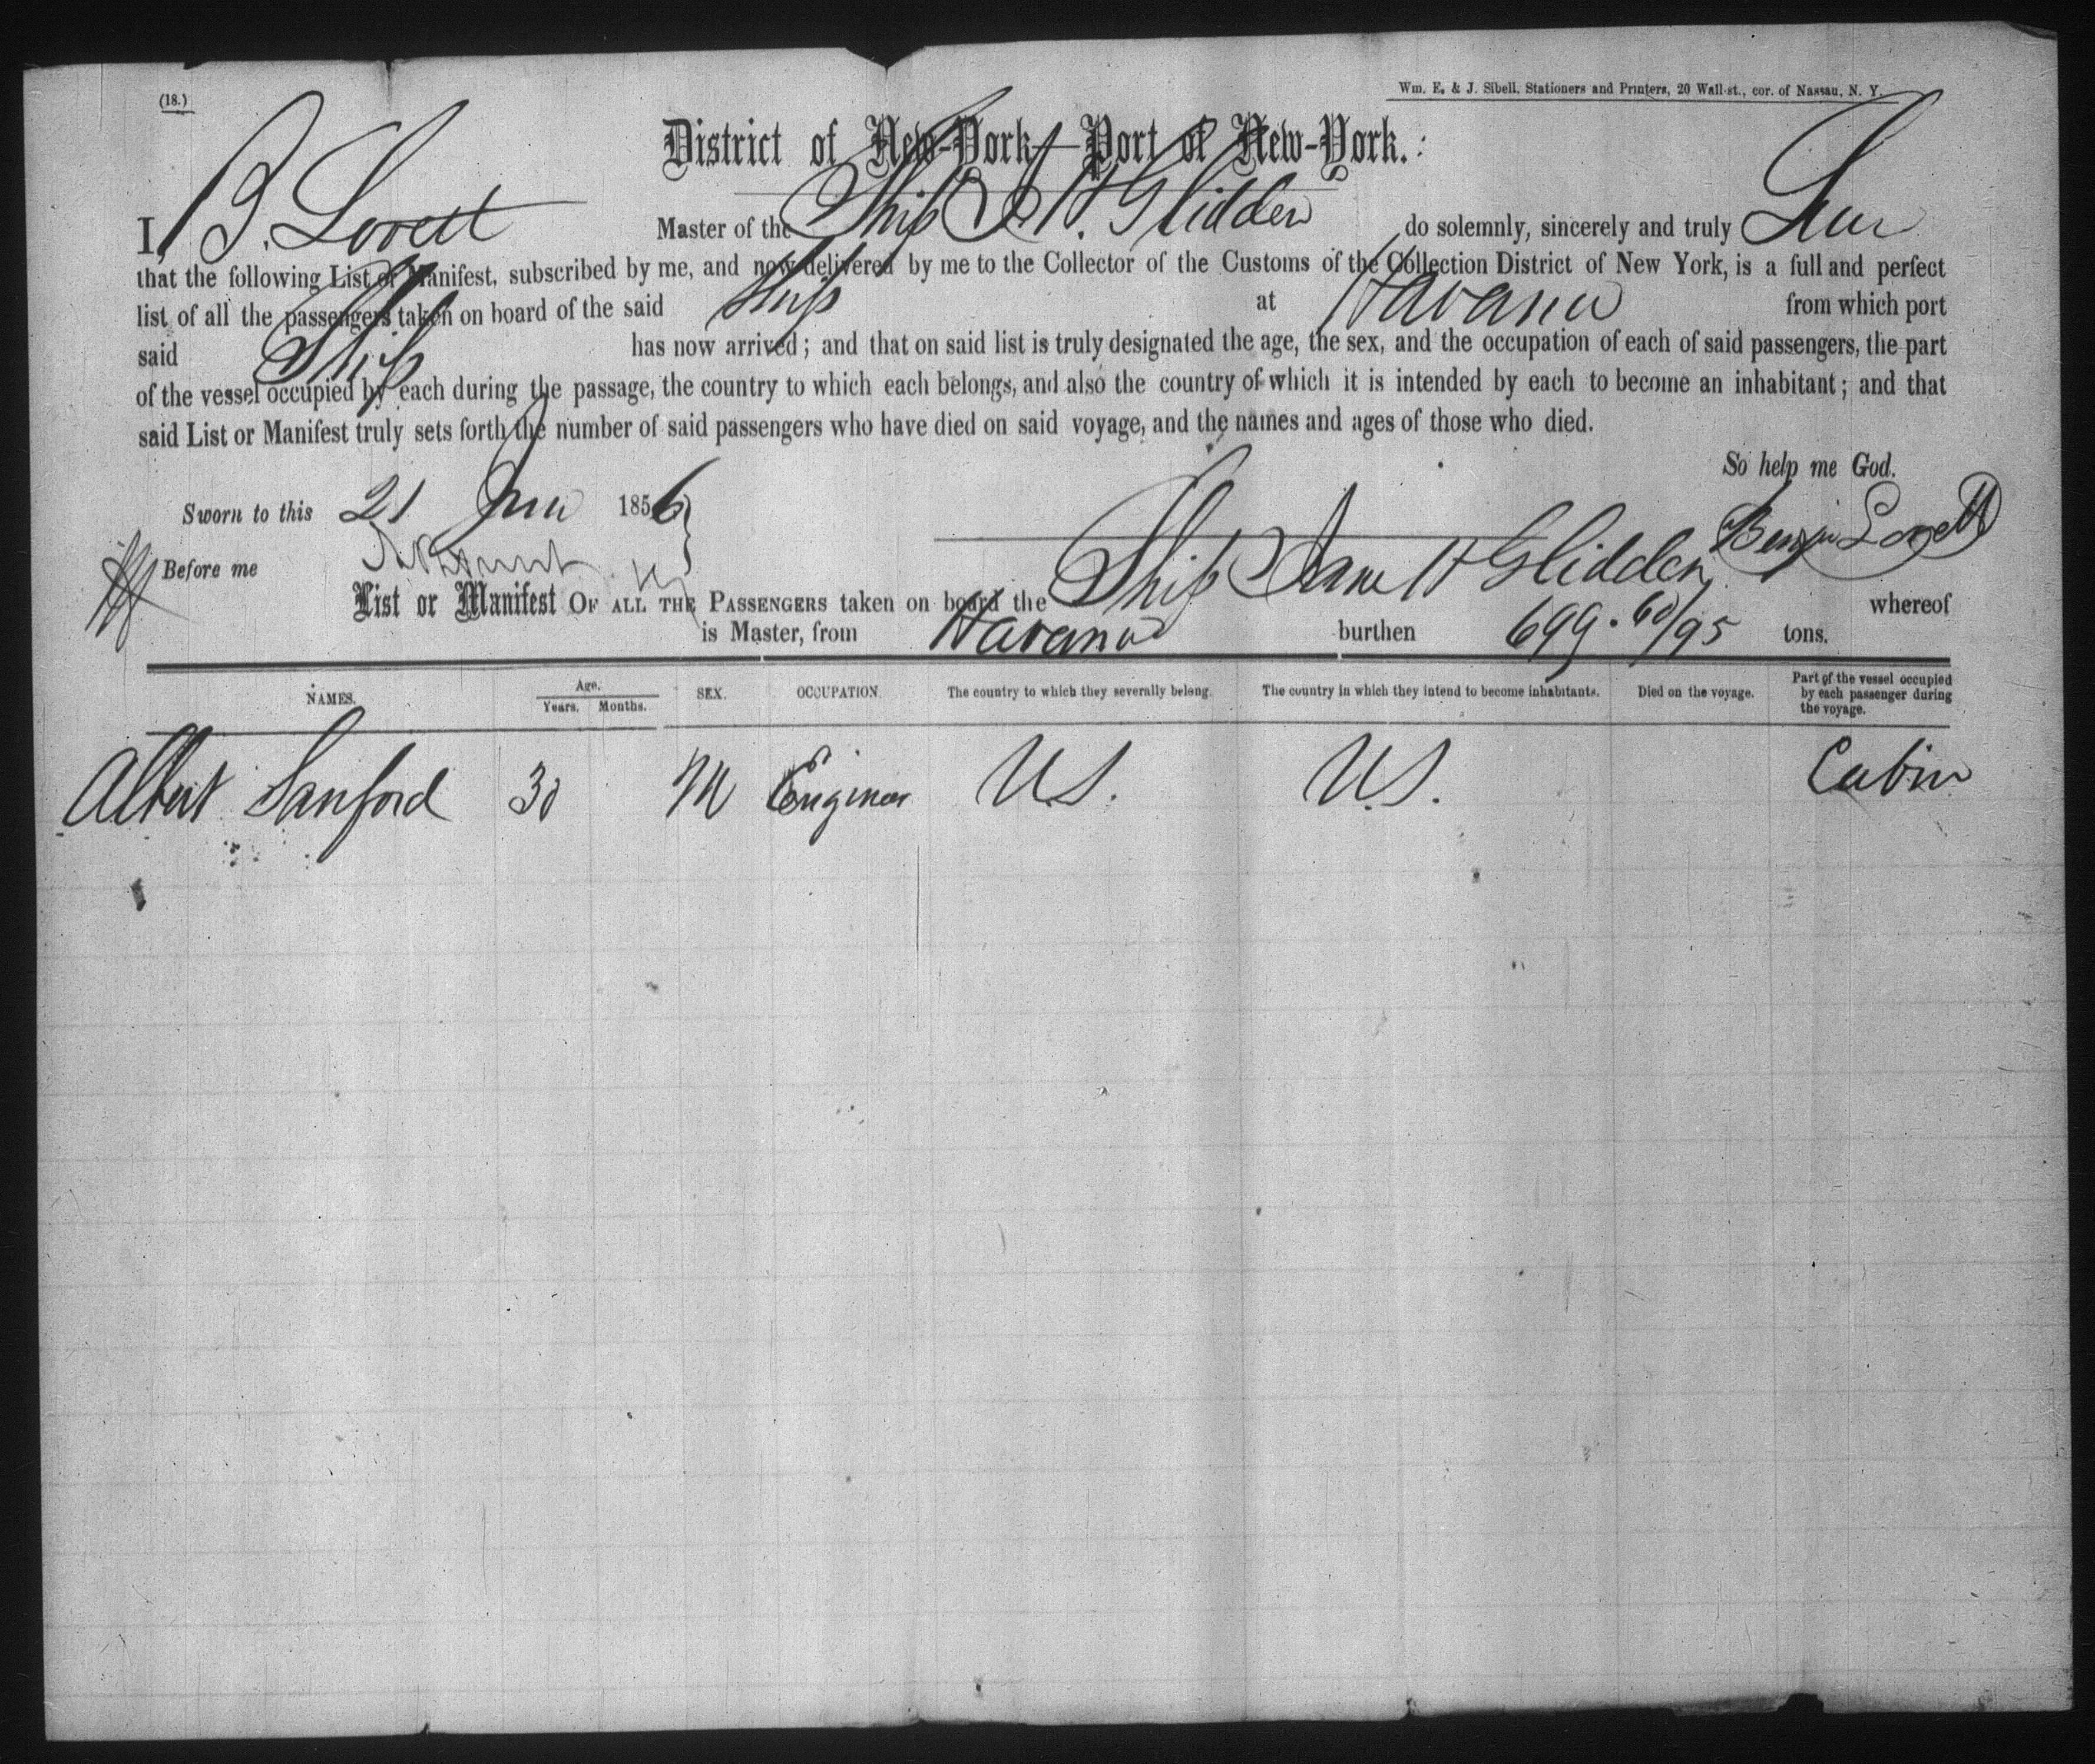 (18.)
Wm. E. & J. Sibell, Stationers and Printers, 20 Wall-st., cor. of Nassau, N. Y.
District of New-York—Port of New-York.
I, B. Lovett Master of the Ship J. H. Glidden do solemnly, sincerely and truly
that the following List or Manifest, subscribed by me, and now delivered by me to the Collector of the Customs of the Collection District of New York, is a full and perfect
list of all the passengers taken on board of the said Ship at Havana from which port
said Ship has now arrived; and that on said list is truly designated the age, the sex, and the occupation of each of said passengers, the part
of the vessel occupied by each during the passage, the country to which each belongs, and also the country of which it is intended by each to become an inhabitant; and that
said List or Manifest truly sets forth the number of said passengers who have died on said voyage, and the names and ages of those who died.
So help me God.
Sworn to this 21 1856
Benjn Lovett
Before me
List or Manifest OF ALL THE PASSENGERS taken on board the Ship Jane H Glidden whereof
is Master, from Havana burthen 699 . 60/95 tons.
NAMES. Age. Years. Months. SEX. OCCUPATION. The country to which they severally belong. The country in which they intend to become inhabitants. Died on the voyage. Part of the vessel occupied by each passenger during the voyage.
Albert Sanford 30 M Engineer U.S. U.S. Cabin